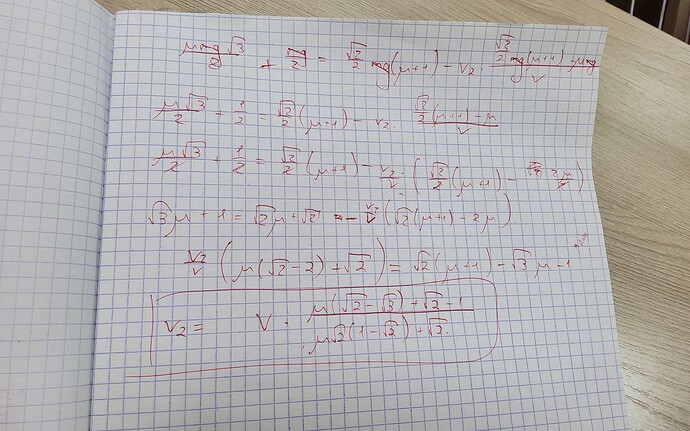 μmg√3/2 + mg/2 = √2/2 mg(μ+1) - v₂ · (√2/2 mg(μ+1) - μmg)/v
μ√3/2 + 1/2 = √2/2 (μ+1) - v₂ · (√2/2 (μ+1) - μ)/v
μ√3/2 + 1/2 = √2/2 (μ+1) - v₂/v · (√2/2 (μ+1) - 2μ/2)
√3μ + 1 = √2μ + √2 - v₂/v (√2(μ+1) - 2μ)
v₂/v (μ(√2-2) + √2) = √2(μ+1) - √3μ - 1
v₂ = v · (μ(√2-√3) + √2 - 1)/(μ√2(1-√2) + √2)